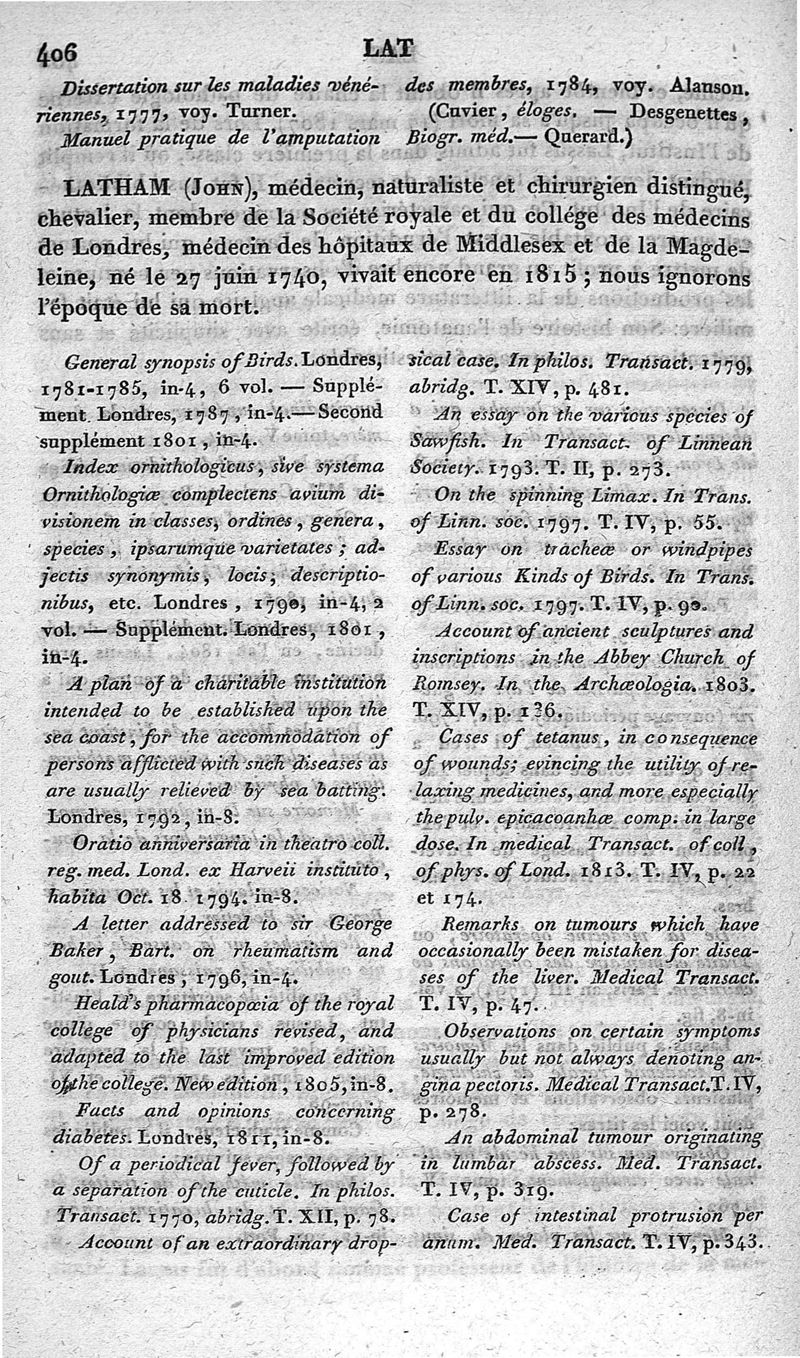 406
LAT
Dissertation sur les maladies véné-
riennes, 1777, voy. Turner.
Manuel pratique de l'amputation
des membres, 1784, voy. Alanson.
(Cuvier, éloges. — Desgenettes,
Biogr. méd. — Querard.)
LATHAM (John), médecin, naturaliste et chirurgien distingué,
chevalier, membre de la Société royale et du collége des médecins
de Londres, médecin des hôpitaux de Middlesex et de la Magde-
leine, né le 27 juin 1740, vivait encore en 1815 ; nous ignorons
l'époque de sa mort.
General synopsis of Birds. Londres,
1781-1785, in-4, 6 vol. — Supplé-
ment. Londres, 1787, in-4. — Second
supplément 1801, in-4.
Index ornithologicus, sive systema
Ornithologiæ complectens avium di-
visionem in classes, ordines, genera,
species, ipsarumque varietates ; ad-
jectis synonymis, locis, descriptio-
nibus, etc. Londres, 1790, in-4, 2
vol. — Supplément. Londres, 1801,
in-4.
A plan of a charitable institution
intended to be established upon the
sea coast, for the accommodation of
persons afflicted with such diseases as
are usually relieved by sea batting.
Londres, 1792, in-8.
Oratio anniversaria in theatro coll.
reg. med. Lond. ex Harveii instituto,
habita Oct. 18. 1794. in-8.
A letter addressed to sir George
Baker, Bart. on rheumatism and
gout. Londres, 1796, in-4.
Heald's pharmacopœia of the royal
college of physicians revised, and
adapted to the last improved edition
of the college. New edition, 1805, in-8.
Facts and opinions concerning
diabetes. Londres, 1811, in-8.
Of a periodical fever, followed by
a separation of the cuticle. In philos.
Transact. 1770, abridg. T. XII, p. 78.
Account of an extraordinary drop-
sical case. In philos. Transact. 1779,
abridg. T. XIV, p. 481.
An essay on the various species of
Sawfish. In Transact. of Linnean
Society. 1793. T. II, p. 273.
On the spinning Limax. In Trans.
of Linn. soc. 1797. T. IV, p. 55.
Essay on tracheæ or windpipes
of various Kinds of Birds. In Trans.
of Linn. soc. 1797. T. IV, p. 90.
Account of ancient sculptures and
inscriptions in the Abbey Church of
Romsey. In the Archœologia. 1803.
T. XIV, p. 136.
Cases of tetanus, in consequence
of wounds; evincing the utility of re-
laxing medicines, and more especially
the pulv. epicacoanhœ comp. in large
dose. In medical Transact. of coll,
of phys. of Lond. 1813. T. IV, p. 22
et 174.
Remarks on tumours which have
occasionally been mistaken for disea-
ses of the liver. Medical Transact.
T. IV, p. 47.
Observations on certain symptoms
usually but not always denoting an-
gina pectoris. Medical Transact. T. IV,
p. 278.
An abdominal tumour originating
in lumbar abscess. Med. Transact.
T. IV, p. 319.
Case of intestinal protrusion per
anum. Med. Transact. T. IV, p. 343.